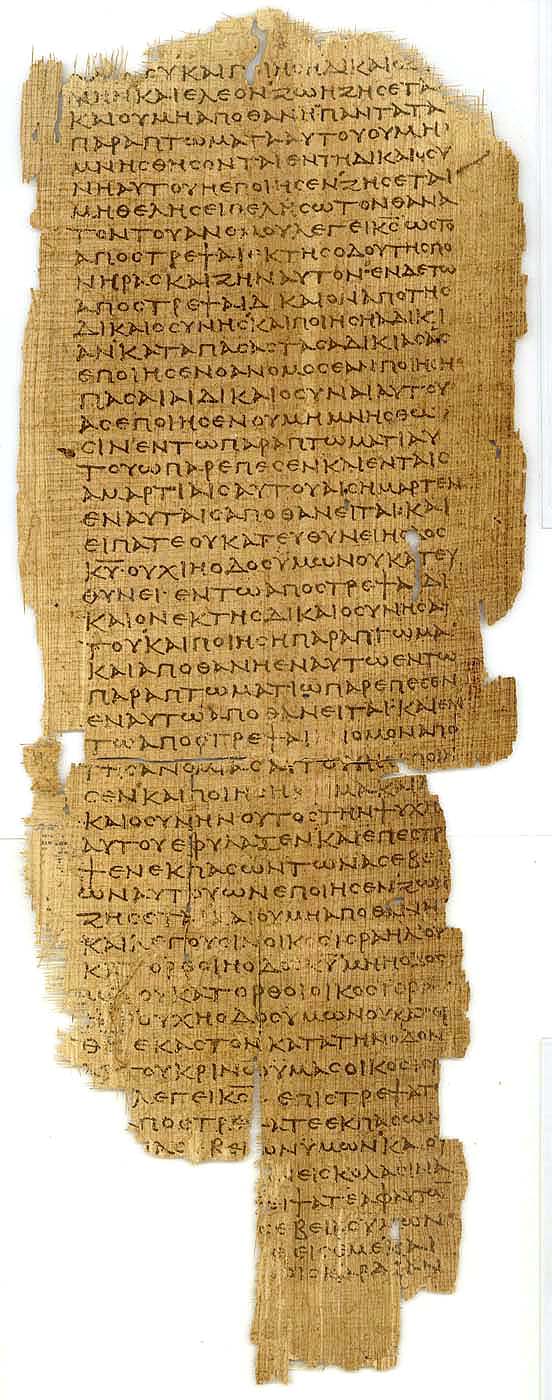 ΟΥΚΑΙΠΟΙΗΣΗΔΙΚΑΙΟ
ΝΗΝΚΑΙΕΛΕΟΝΖΩΗΖΗϹΕΤΑ
ΚΑΙΟΥΜΗΑΠΟΘΑΝΗΠΑΝΤΑΤΑ
ΠΑΡΑΠΤΩΜΑΤΑΑΥΤΟΥΟΥΜΗ
ΜΝΗϹΘΗϹΟΝΤΑΙΕΝΤΗΔΙΚΑΙΟϹΥ
ΝΗΑΥΤΟΥΗΕΠΟΙΗϹΕΝΖΗϹΕΤΑΙ
ΜΗΘΕΛΗϹΕΙΘΕΛΗϹΩΤΟΝΘΑΝΑ
ΤΟΝΤΟΥΑΝΟΜΟΥΛΕΓΕΙΚ̅Ϲ̅ΩϹΤΟ
ΑΠΟϹΤΡΕΨΑΙΕΚΤΗϹΟΔΟΥΤΗϹΠΟ
ΝΗΡΑϹΚΑΙΖΗΝΑΥΤΟΝ·ΕΝΔΕΤΩ
ΑΠΟϹΤΡΕΨΑΙΔΙΚΑΙΟΝΑΠΟΤΗϹ
ΔΙΚΑΙΟϹΥΝΗϹΚΑΙΠΟΙΗϹΗΑΔΙΚΙ
ΑΝΚΑΤΑΠΑϹΑϹΤΑϹΑΔΙΚΙΑϹΑϹ
ΕΠΟΙΗϹΕΝΟΑΝΟΜΟϹΕΑΝΠΟΙΗϹΗ
ΠΑϹΑΙΑΙΔΙΚΑΙΟϹΥΝΑΙΑΥΤΟΥ
ΑϹΕΠΟΙΗϹΕΝΟΥΜΗΜΝΗϹΘΩ
ϹΙΝΕΝΤΩΠΑΡΑΠΤΩΜΑΤΙΑΥ
ΤΟΥΩΠΑΡΕΠΕϹΕΝΚΑΙΕΝΤΑΙϹ
ΑΜΑΡΤΙΑΙϹΑΥΤΟΥΑΙϹΗΜΑΡΤΕΝ
ΕΝΑΥΤΑΙϹΑΠΟΘΑΝΕΙΤΑΙ·ΚΑΙ
ΕΙΠΑΤΕΟΥΚΑΤΕΥΘΥΝΕΙΗΟΔΟϹ
Κ̅Υ̅·ΟΥΧΙΗΟΔΟϹΥΜΩΝΟΥΚΑΤΕΥ
ΘΥΝΕΙ·ΕΝΤΩΑΠΟϹΤΡΕΨΑΙΔΙ
ΚΑΙΟΝΕΚΤΗϹΔΙΚΑΙΟϹΥΝΗϹΑΥ
ΤΟΥΚΑΙΠΟΙΗϹΗΠΑΡΑΠΤΩΜΑ
ΚΑΙΑΠΟΘΑΝΗΕΝΑΥΤΩΕΝΤΩ
ΠΑΡΑΠΤΩΜΑΤΙΩΠΑΡΕΠΕϹΕΝ
ΕΝΑΥΤΩΑΠΟΘΑΝΕΙΤΑΙ·ΚΑΙΕΝ
ΤΩΑΠΟϹΤΡΕΨΑΙ ΝΟΜΟΝΑΠΟ
ΤΗϹΑΝΟΜΙΑϹΑΥΤΟΥΗϹΕΠΟΙΗ
ϹΕΝΚΑΙΠΟΙΗϹΗ ΙΜΑΚΑΙΔΙ
ΚΑΙΟϹΥΝΗΝΟΥΤΟϹΤΗΝΨΥΧΗ
ΑΥΤΟΥΕΦΥΛΑΞΕΝΚΑΙΕΠΕϹΤΡ
ΨΕΝΕΚΠΑϹΩΝΤΩΝΑϹΕΒΕΙ
ΩΝΑΥΤΟΥΩΝΕΠΟΙΗϹΕΝΖΩΗ
ΖΗϹΕΤΑΙΚΑΙΟΥΜΗΑΠΟΘΑΝΗ
ΚΑΙΛΕΓΟΥϹΙΝΟΙΚΟϹΙϹΡΑΗΛΟΥ
Κ ΟΡΘΟΙΗΟΔΟϹΚ̅Υ̅ΜΗΗΟΔΟϹ
ΟΥΚΑΤΟΡΘΟΙΟΙΚΟϹΙϹΡΑ
ΟΥΧΗΟΔΟϹΥΜΩΝΟΥΚΑΤΟΡ
Θ ΕΚΑϹΤΟΝΚΑΤΑΤΗΝΟΔΟΝ
ΤΟΥΚΡΙΝΩΥΜΑϹΟΙΚΟϹΙϹΡ
ΛΕΓΕΙΚ̅Ϲ̅ ΕΠΙϹΤΡΕΨΑΤΕ
ΑΠΟϹΤΡΕΨΑΤΕΕΚΠΑϹΩΝ
ΑϹΕΒΕΙΩΝΥΜΩΝΚΑΙΟΥ
ΕΙϹΚΟΛΑϹΙΝΑ
ΙΨΑΤΕΑΦΑΥΤΩ
ϹΕΒΕΙΑϹΥΜΩΝ
ΕΙϹΕΜΕΚΑΙ
ΚΑΡΔΙΑΝ